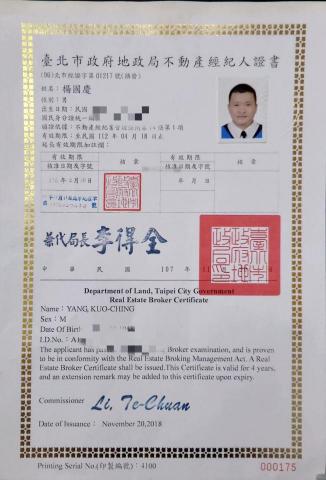 臺北市政府地政局不動產經紀人證書
姓名：楊國慶
性別：男
出生日期：民國
國民身分證統一編
有效期限：至民國 112 年 04 月 18 日止
延長有效期限加註欄：
有效期限
核准日期及字號
核章
有效期限
核准日期及字號
核章
年 月 日
兼代局長 李得全
中華民國 107 年 11
Department of Land, Taipei City Government
Real Estate Broker Certificate
Name: YANG, KUO-CHING
Sex: M
Date Of Birth
I.D.No.: A1
The applicant has pas Broker examination, and is proven
to be in conformity with the Real Estate Broking Management Act. A Real
Estate Broker Certificate shall be issued. This Certificate is valid for 4 years,
and an extension remark may be added to this certificate upon expiry.
Commissioner Li, Te-Chuan
Date of Issuance: November 20,2018
Printing Serial No.(印製編號): 4100
000175